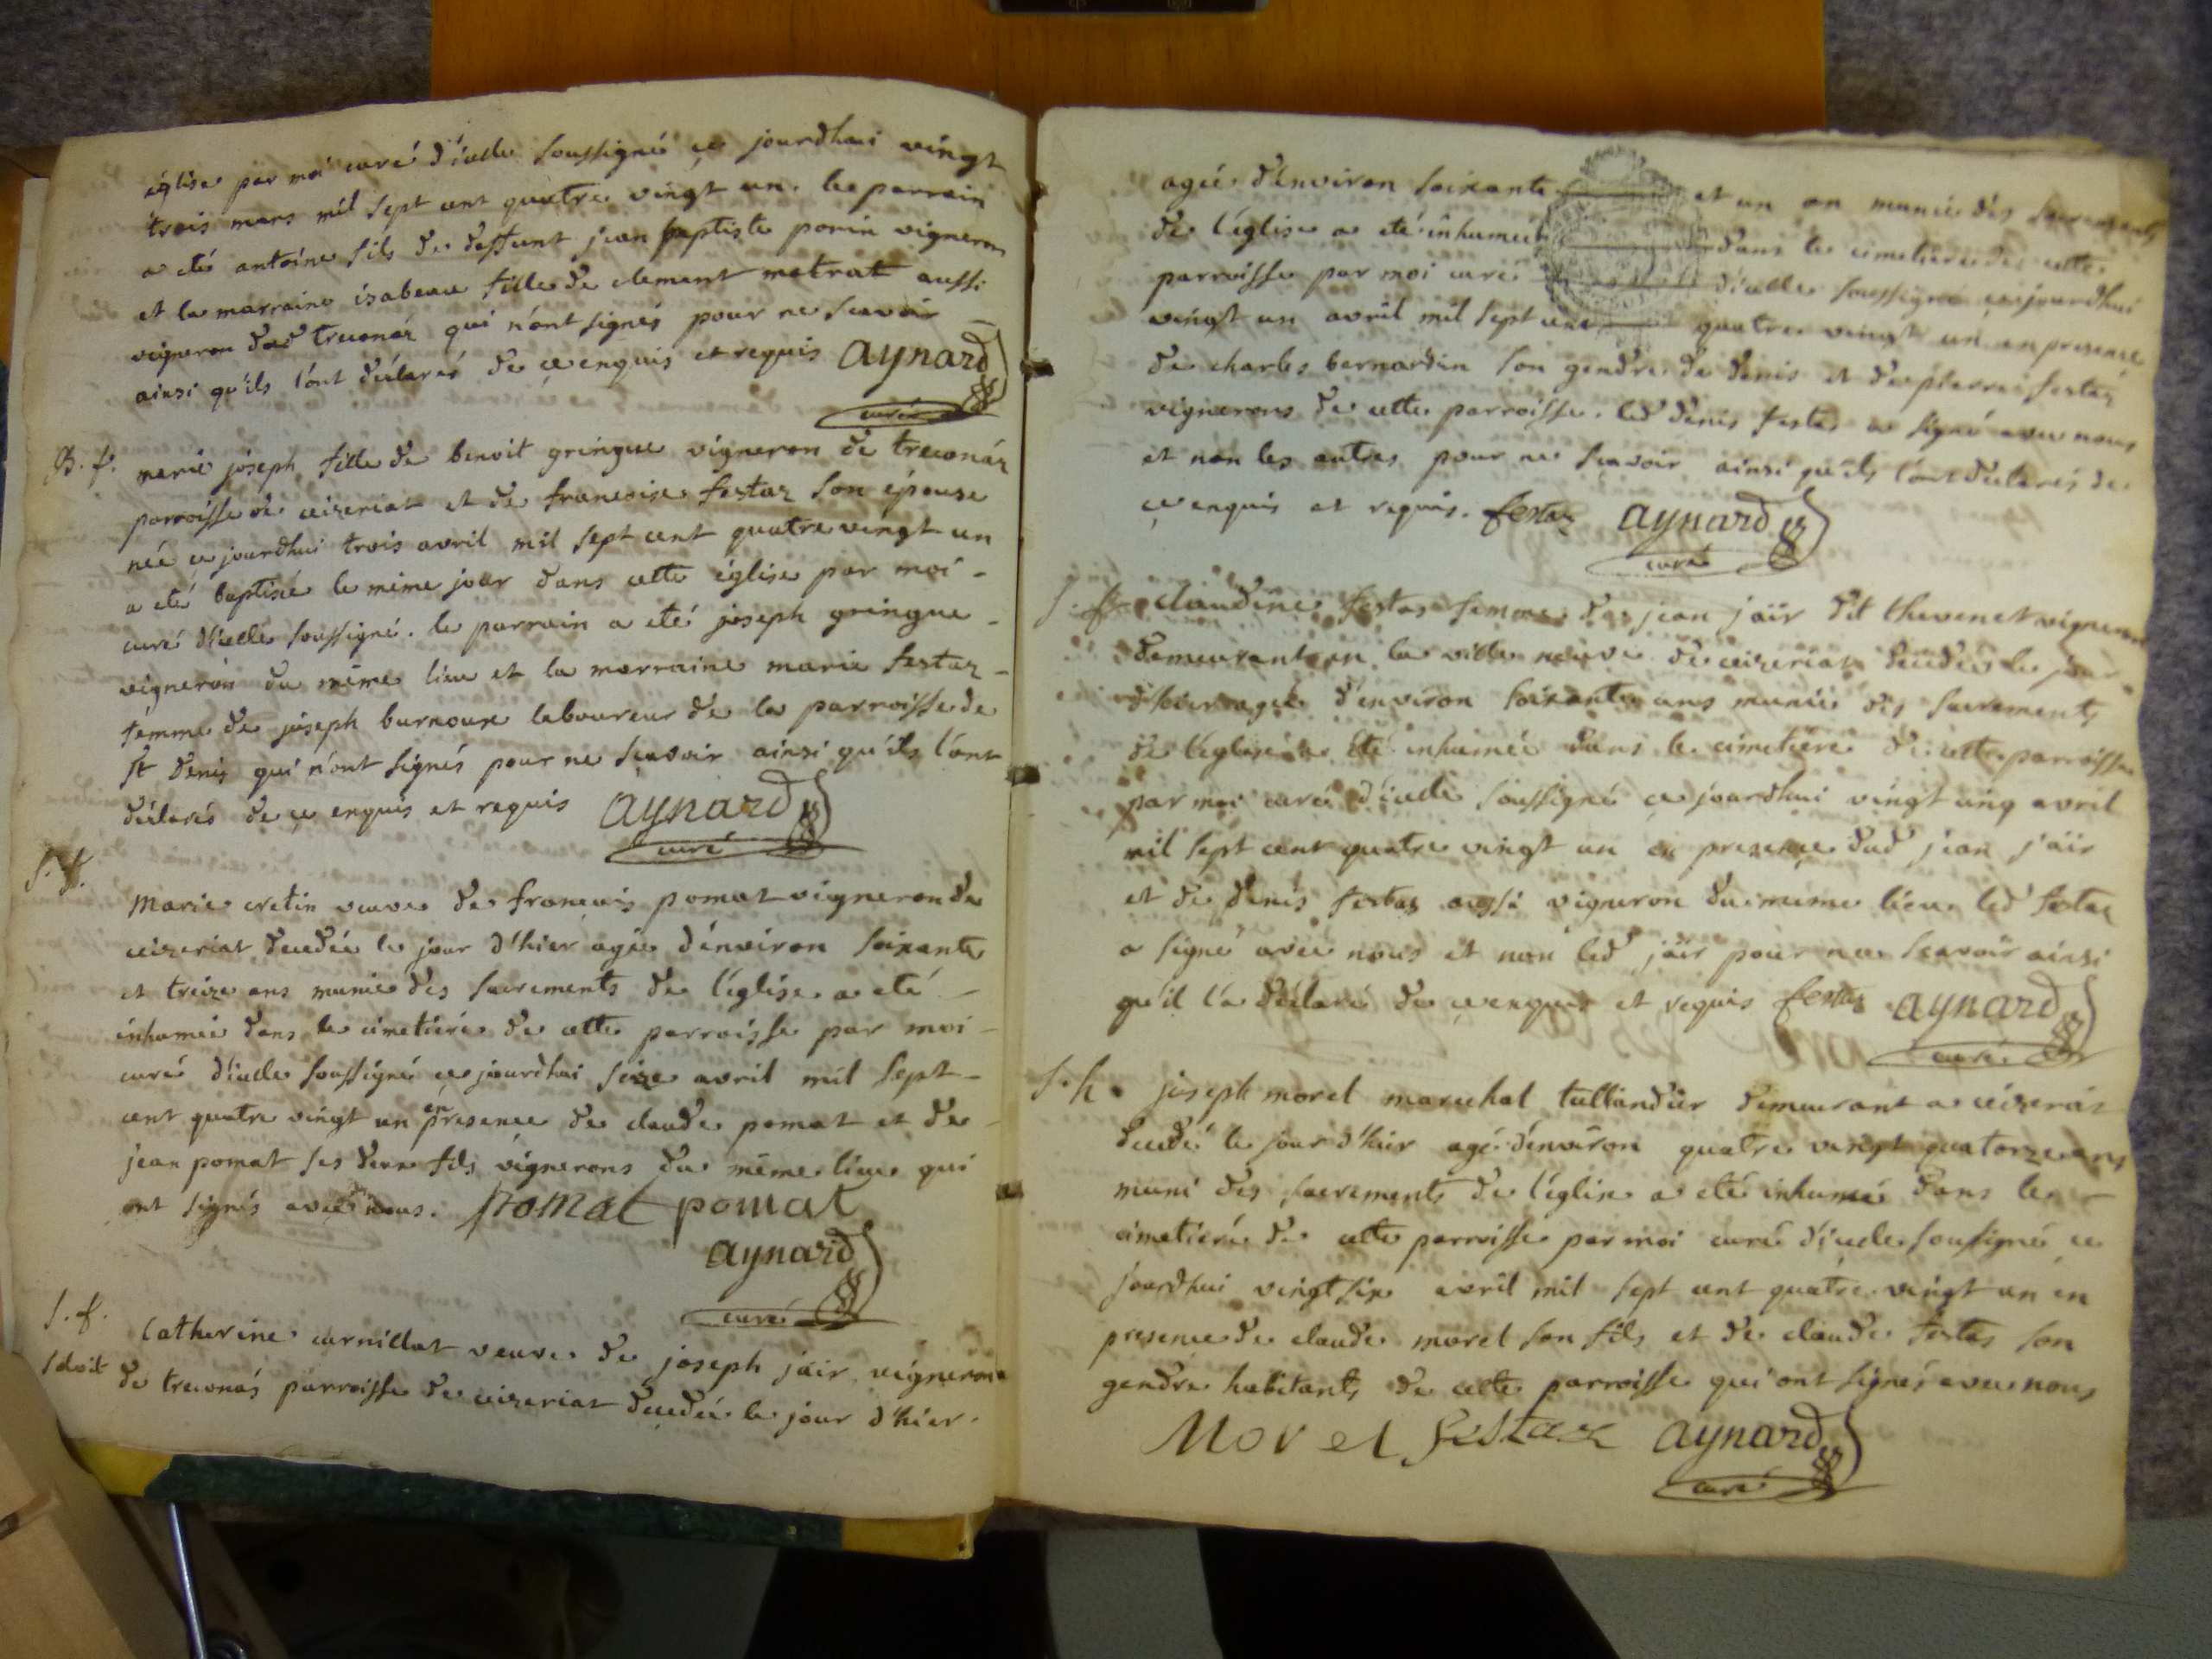 église par moi curé d'icelle soussigné ce jourdhui vingt
trois mars mil sept cent quatre vingt un. le parrain
a eté antoine fils de deffunt jean baptiste porin vigneron
et la marraine izabeau fille de clement metrat aussi
vigneron dud treconáz qui n'ont signés pour ne scavoir
ainsi qu'ils l'ont déclarés de ce enquis et requis Aynard
curé
B. f. marie joseph fille de benoit gringue vigneron de treconáz
parroisse de ceizeriat et de francoise festaz son épouse
née ce jourdhui trois avril mil sept cent quatre vingt un
a eté baptisée le même jour dans cette église par moi -
curé d'icelle soussigné. le parrain a eté joseph gringue -
vigneron du même lieu et la marraine marie festaz -
femme de joseph burnoux laboureur de la parroisse de
st denis qui n'ont signés pour ne scavoir ainsi qu'ils l'ont
déclarés de ce enquis et requis Aynard
curé
S. f.
Marie cretin veuve de francois pomat vigneron de
ceizeriat decedée le jour d'hier agée d'environ soixante
et treize ans munie des sacrements de l'église a eté -
inhumée dans le cimetiére de cette parroisse par moi -
curé d'icelle soussigné ce jourdhui seize avril mil sept -
cent quatre vingt un en presence de claude pomat et de -
jean pomat ses deux fils vignerons du même lieu qui
ont signés avec nous. pomat pomat
Aynard
curé
S. f. Catherine curnillat veuve de joseph jair vigneron
sdoit de treconás parroisse de ceizeriat decedée le jour d'hier
agée d'environ soixante et un an munie des sacrements
de l'église a eté inhumée dans le cimetiére de cette
parroisse par moi curé d'icelle soussigné ce jourdhui
vingt un avril mil sept cent quatre vingt un en presence
de charles bernardin son gendre de denis et de pierre festaz
vignerons de cette parroisse. led denis festas a signé avec nous
et non les autres pour ne scavoir ainsi qu'ils l'ont déclarés de
ce enquis et requis. festaz Aynard
curé
S. f. claudine festas femme de jean jaïr dit thevenet vigneron
demeurant en la ville neuve de ceizeriat decedée le jour
d'hier agée d'environ soixante ans munie des sacrements
de l'église a eté inhumée dans le cimetiére de cette parroisse
par moi curé d'icelle soussigné ce jourdhui vingt cinq avril
mil sept cent quatre vingt un en presence dud jean jaïr
et de denis festas aussi vigneron du même lieu led festaz
a signé avec nous et non led jaïr pour ne scavoir ainsi
qu'il l'a déclaré de ce enquis et requis festaz Aynard
curé
S. h. joseph morel marechal tallandier demeurant a céizeriat
decedé le jour d'hier agé d'environ quatre vingt quatorze ans
muni des sacrements de l'église a eté inhumé dans le -
cimetiére de cette parroisse par moi curé d'icelle soussigné ce
jourdhui vingt six avril mil sept cent quatre vingt un en
presence de claude morel son fils et de claude festas son
gendre habitants de cette parroisse qui ont signés avec nous
Morel festaz Aynard
curé